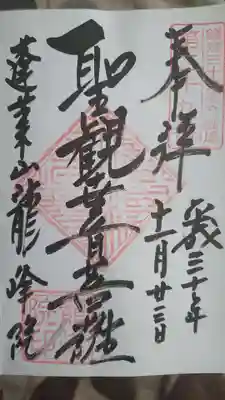 奉拝
平成三十年
十一月廿三日
聖観世音菩薩
蓬莱山龍峰院